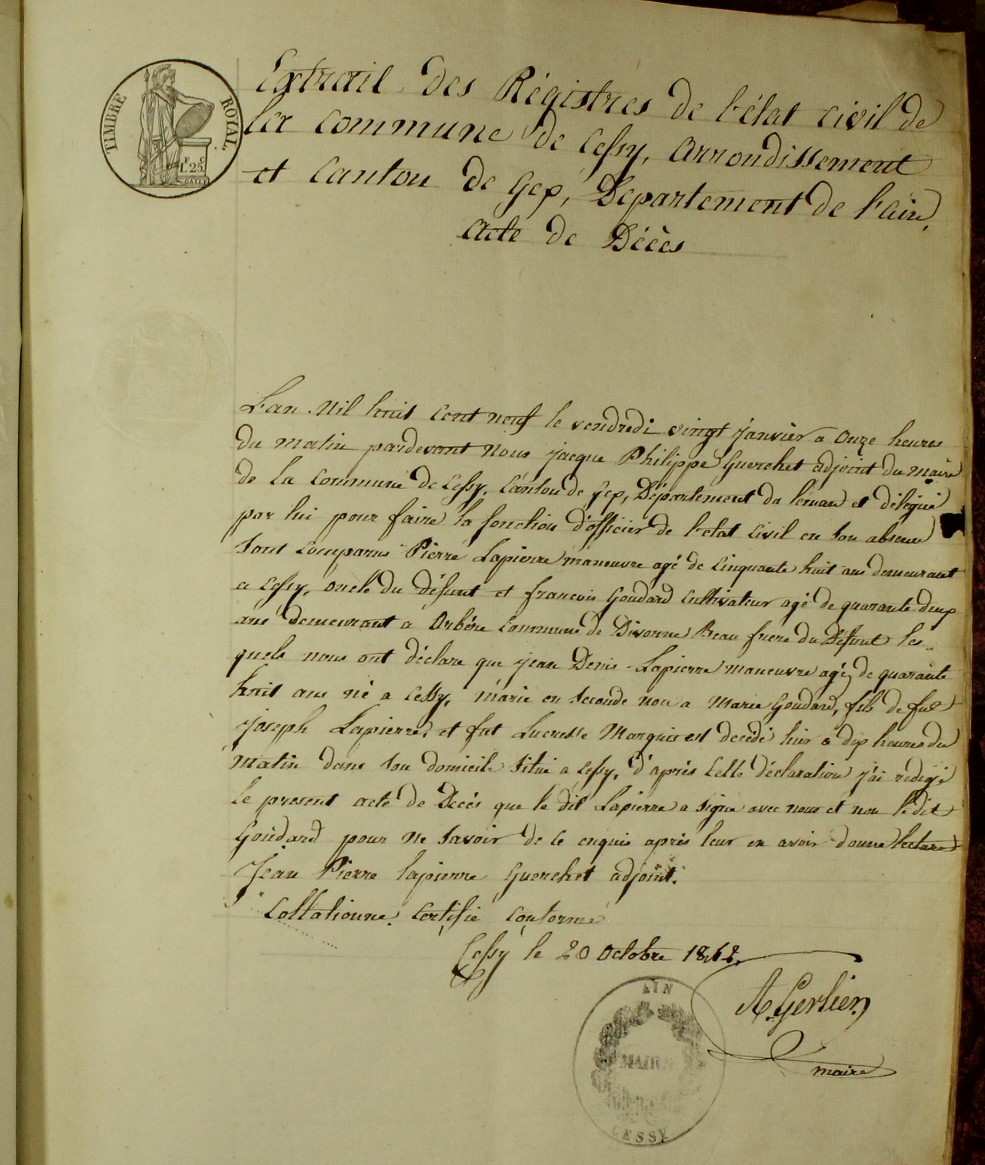 TIMBRE ROYAL
1F 25C
Extrait des Régistres de l'état civil de
la commune de Cessy, arrondissement
et Canton de Gex, Département de l'ain,
acte de Décès
L'an Mil huit cent neuf le vendredi vingt janvier a Onze heures
du matin pardevant Nous jacque Philippe Guerchet adjoint du maire
de la Commune de Cessy, Canton de Gex, Département du leman et délégué
par lui pour faire la fonction d'officier de l'état Civil en son absence
sont comparus Pierre Lapierre maneuvre agé de Cinquante huit ans demeurant
a Cessy, oncle du défunt et francois Goudard Cultivateur agé de quarante deux
ans demeurant a Commune de Divonne Beau frere du Défunt les
quels nous ont déclare que jean Denis Lapierre maneuvre agé de quarante
huit ans né a Cessy, marié en seconde noce a Marie Goudard, fils de feu
joseph Lapierre et fut Lucresse Marquis est decédé hier a dix heures du
Matin dans son domicile situé a Cessy, d'après Cette déclaration j'ai rédigé,
le present acte de Décés que le dit Lapierre a signé avec nous et non le dit
Goudard pour ne savoir de ce enquis après leur en avoir donné lecture
Jean Pierre lapierre Guerchet adjoint.
Collationné Certifié Conforme
Cessy le 20 Octobre 1842
A. Gerlier
maire
AIN
MAIRIE
CESSY